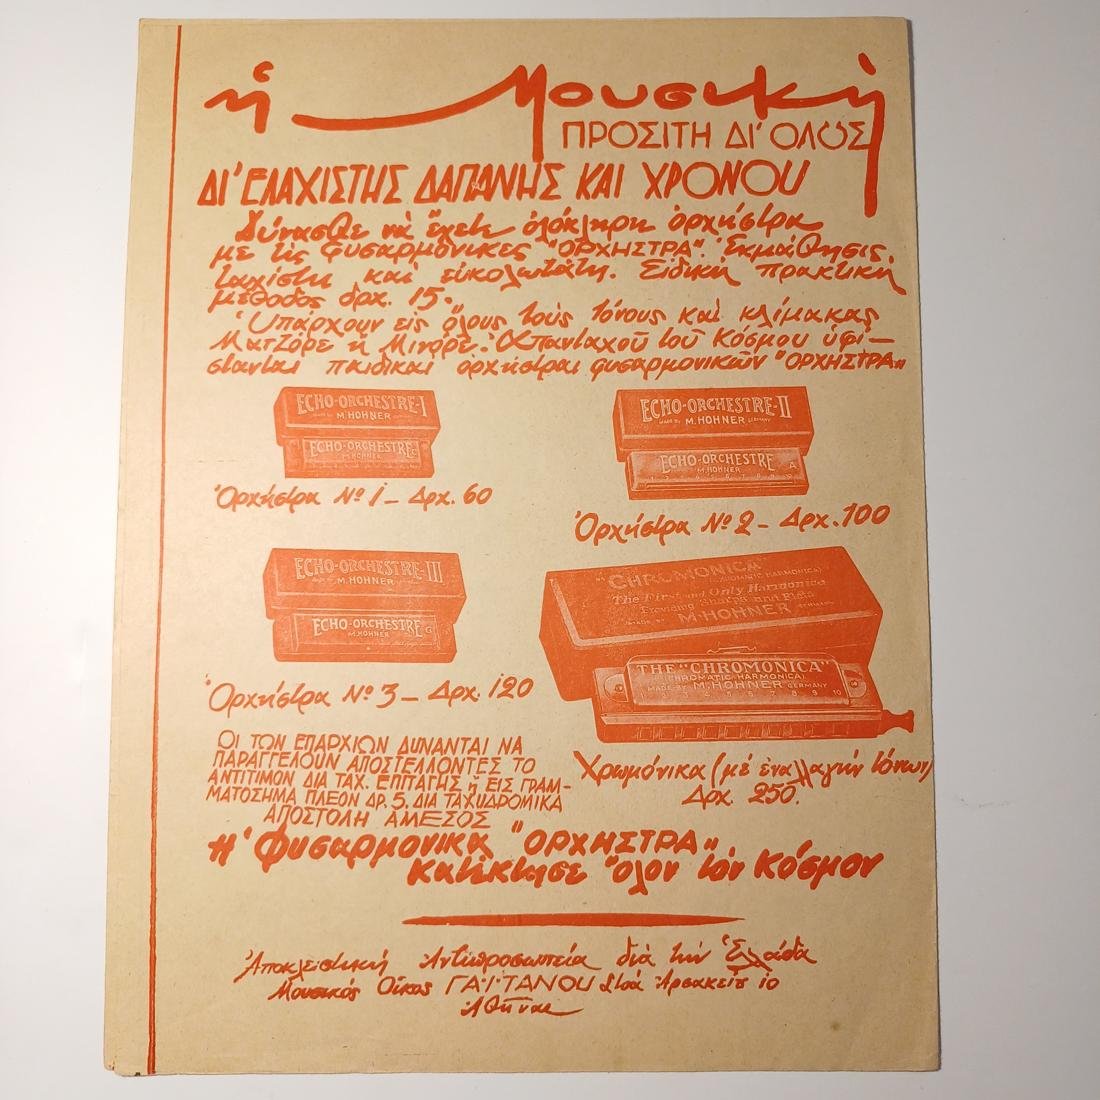 ἡ Μουσική
ΠΡΟΣΙΤΗ ΔΙ' ΟΛΟΥΣ
ΔΙ' ΕΛΑΧΙΣΤΗΣ ΔΑΠΑΝΗΣ ΚΑΙ ΧΡΟΝΟΥ
Δύνασθε νὰ ἔχετε ὁλόκληρη ὀρχήστρα
με τὶς φυσαρμόνικες "ΟΡΧΗΣΤΡΑ". Ἐκμάθησις
ταχίστη καὶ εὐκολωτάτη. Εἰδικὴ πρακτικὴ
μέθοδος δρχ. 15.
Ὑπάρχουν εἰς ὅλους τοὺς τόνους καὶ κλίμακας
Ματζόρε ἢ Μινόρε. Ἁπανταχοῦ τοῦ Κόσμου ὑφί-
στανται παιδικαὶ ὀρχήστραι φυσαρμονικῶν "ΟΡΧΗΣΤΡΑ"
ECHO-ORCHESTRE-I
MADE BY M. HOHNER GERMANY
ECHO-ORCHESTRE C
M. HOHNER
Ὀρχήστρα Νο 1 - Δρχ. 60
ECHO-ORCHESTRE-II
MADE BY M. HOHNER GERMANY
ECHO-ORCHESTRE A
M. HOHNER
1 2 3 4 5 6 7 8 9 10
Ὀρχήστρα Νο 2 - Δρχ. 100
ECHO-ORCHESTRE-III
M. HOHNER
ECHO-ORCHESTRE G
M. HOHNER
Ὀρχήστρα Νο 3 - Δρχ. 120
"CHROMONICA"
(CHROMATIC HARMONICA)
The First and Only Harmonica
Providing Sharps and Flats
MADE BY M. HOHNER GERMANY
THE "CHROMONICA"
(CHROMATIC HARMONICA)
MADE BY M. HOHNER GERMANY
1 2 3 4 5 6 7 8 9 10
Χρωμόνικα (μέ ἐναλλαγήν τόνων)
Δρχ. 250.
ΟΙ ΤΩΝ ΕΠΑΡΧΙΩΝ ΔΥΝΑΝΤΑΙ ΝΑ
ΠΑΡΑΓΓΕΛΟΥΝ ΑΠΟΣΤΕΛΛΟΝΤΕΣ ΤΟ
ΑΝΤΙΤΙΜΟΝ ΔΙΑ ΤΑΧ. ΕΠΙΤΑΓΗΣ ἢ ΕΙΣ ΓΡΑΜ-
ΜΑΤΟΣΗΜΑ ΠΛΕΟΝ ΔΡ. 5. ΔΙΑ ΤΑΧΥΔΡΟΜΙΚΑ
ΑΠΟΣΤΟΛΗ ΑΜΕΣΟΣ
Η Φυσαρμόνικα "ΟΡΧΗΣΤΡΑ"
κατέκτησε ὅλον τὸν Κόσμον
Ἀποκλειστική Ἀντιπροσωπεία διὰ τὴν Ἑλλάδα
Μουσικός Οἶκος ΓΑ·Ι·ΤΑΝΟΥ Στοά Ἀρσακείου 10
Ἀθῆναι